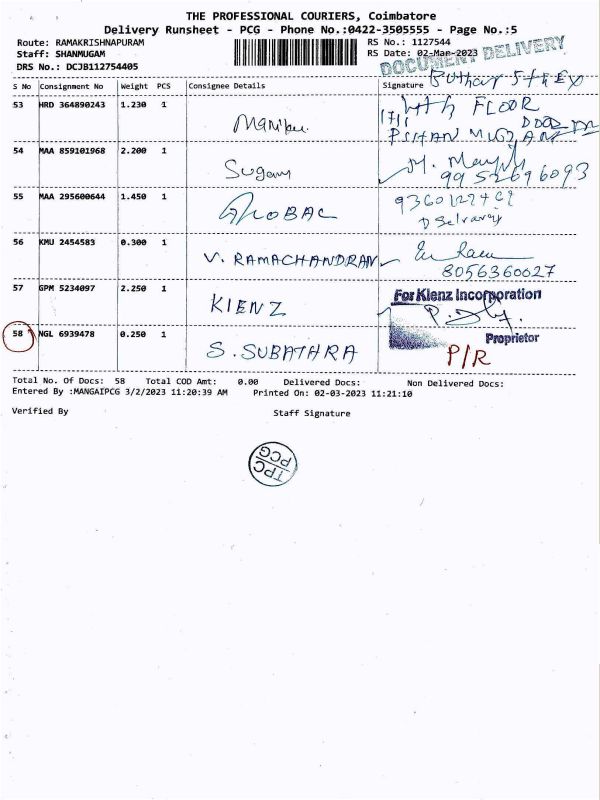 THE PROFESSIONAL COURIERS, Coimbatore
Delivery Runsheet - PCG - Phone No.:0422-3505555 - Page No.:5
Route: RAMAKRISHNAPURAM
RS No.: 1127544
Staff: SHANMUGAM
RS Date: 02-Mar-2023
DRS No.: DCJB112754405
DOCUMENT DELIVERY
S No Consignment No Weight PCS Consignee Details Signature
53 HRD 364890243 1.230 1
FLOOR
54 MAA 859101968 2.200 1 Sugam
9952696093
55 MAA 295600644 1.450 1
D Selvaraj
56 KMU 2454583 0.300 1 V. RAMACHANDRAN
8056360027
57 GPM 5234097 2.250 1 KIENZ
For Klenz Incorporation
Proprietor
58 NGL 6939478 0.250 1 S. SUBATHRA P/R
Total No. Of Docs: 58 Total COD Amt: 0.00 Delivered Docs: Non Delivered Docs:
Entered By :MANGAIPCG 3/2/2023 11:20:39 AM Printed On: 02-03-2023 11:21:10
Verified By Staff Signature
TPC
PCG